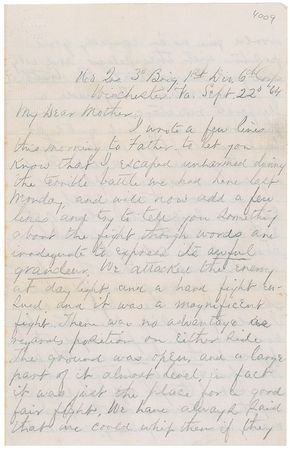 4009
Hd. Qrs 3d Brig 1st Div 6th Corps
Winchester Va. Sept. 22d '64
My Dear Mother,
I wrote a few lines
this morning to Father to let you
know that I escaped unharmed during
the terrible battle we had here last
Monday, and will now add a few
lines and try to tell you something
about the fight though words are
inadequate to express its awful
grandeur. We attacked the enemy
at day light, and a hard fight en-
sued and it was a magnificent
fight. There was no advantage as
regards position on either side
the ground was open, and a large
part of it almost level, in fact
it was just the place for a good
fair fight. We have always said
that we could whip them if they